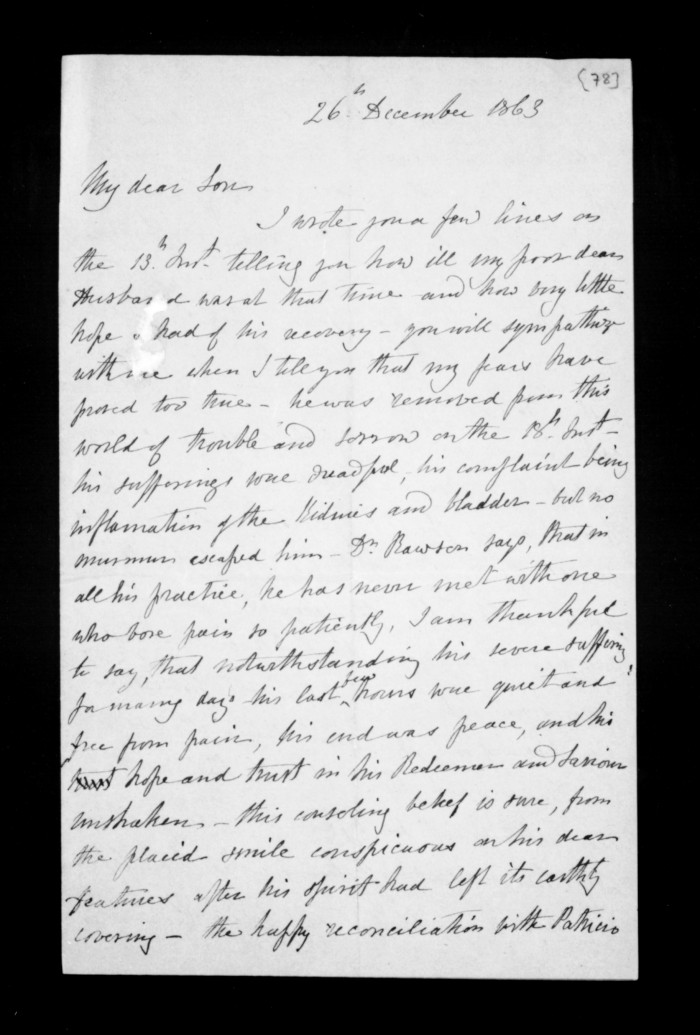 [78]
26th December 1863
My dear Son
I wrote you a few lines on
the 13th Inst. telling you how ill my poor dear
Husband was at that time and how very little
hope I had of his recovery - you will sympathize
with me when I tell you that my fears have
proved too true - he was removed from this
world of trouble and sorrow on the 18th Inst -
his sufferings were dreadful, his complaint being
inflamation of the Kidnies and bladder - but no
murmur escaped him - Dr. Rawson says, that in
all his practice, he has never met with one
who bore pain so patiently, I am thankful
to say, that notwithstanding his severe suffering
for many days his last few hours were quiet and
free from pain, his end was peace, and his
trust hope and trust in his Redeemer and Saviour
unshaken - this consoling belief is sure, from
the placid smile conspicuous on his dear
features after his spirit had left its earthly
covering - the happy reconciliation with Patricio